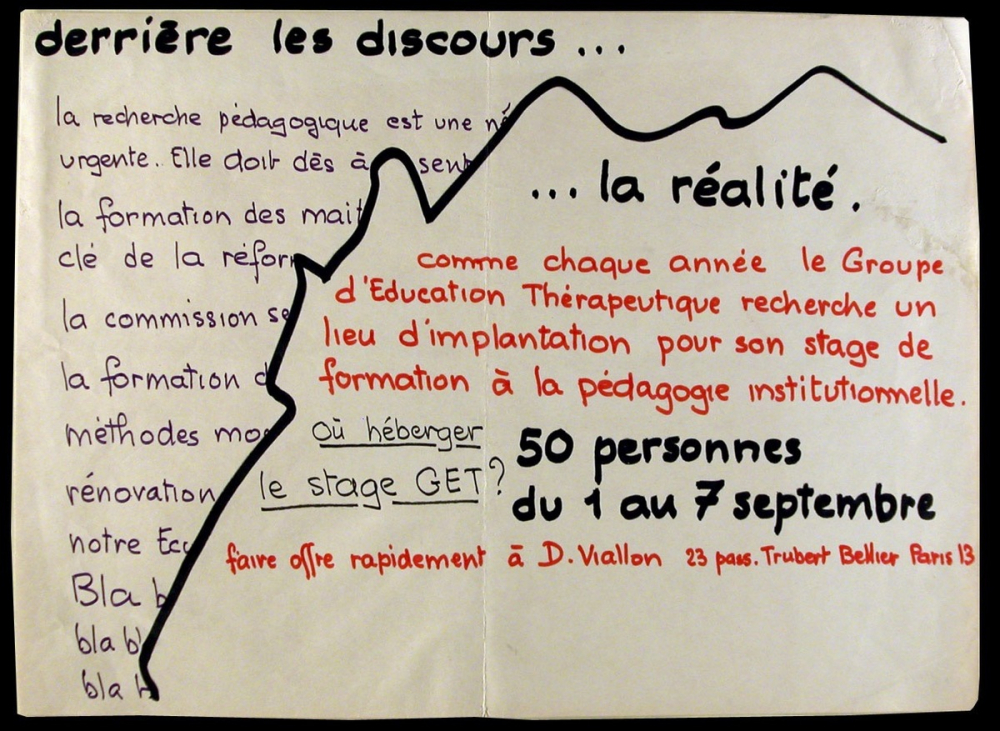 derrière les discours ...
la recherche pédagogique est une né
urgente. Elle doit dès à sent
la formation des mait
clé de la réfor
la commission se
la formation d
méthodes mo
rénovation
notre Eco
Bla b
bla bl
bla b
... la réalité.
comme chaque année le Groupe
d'Education Thérapeutique recherche un
lieu d'implantation pour son stage de
formation à la pédagogie institutionnelle.
Où héberger
le stage GET?
50 personnes
du 1 au 7 septembre
faire offre rapidement à D. Viallon 23 pass. Trubert Bellier Paris 13